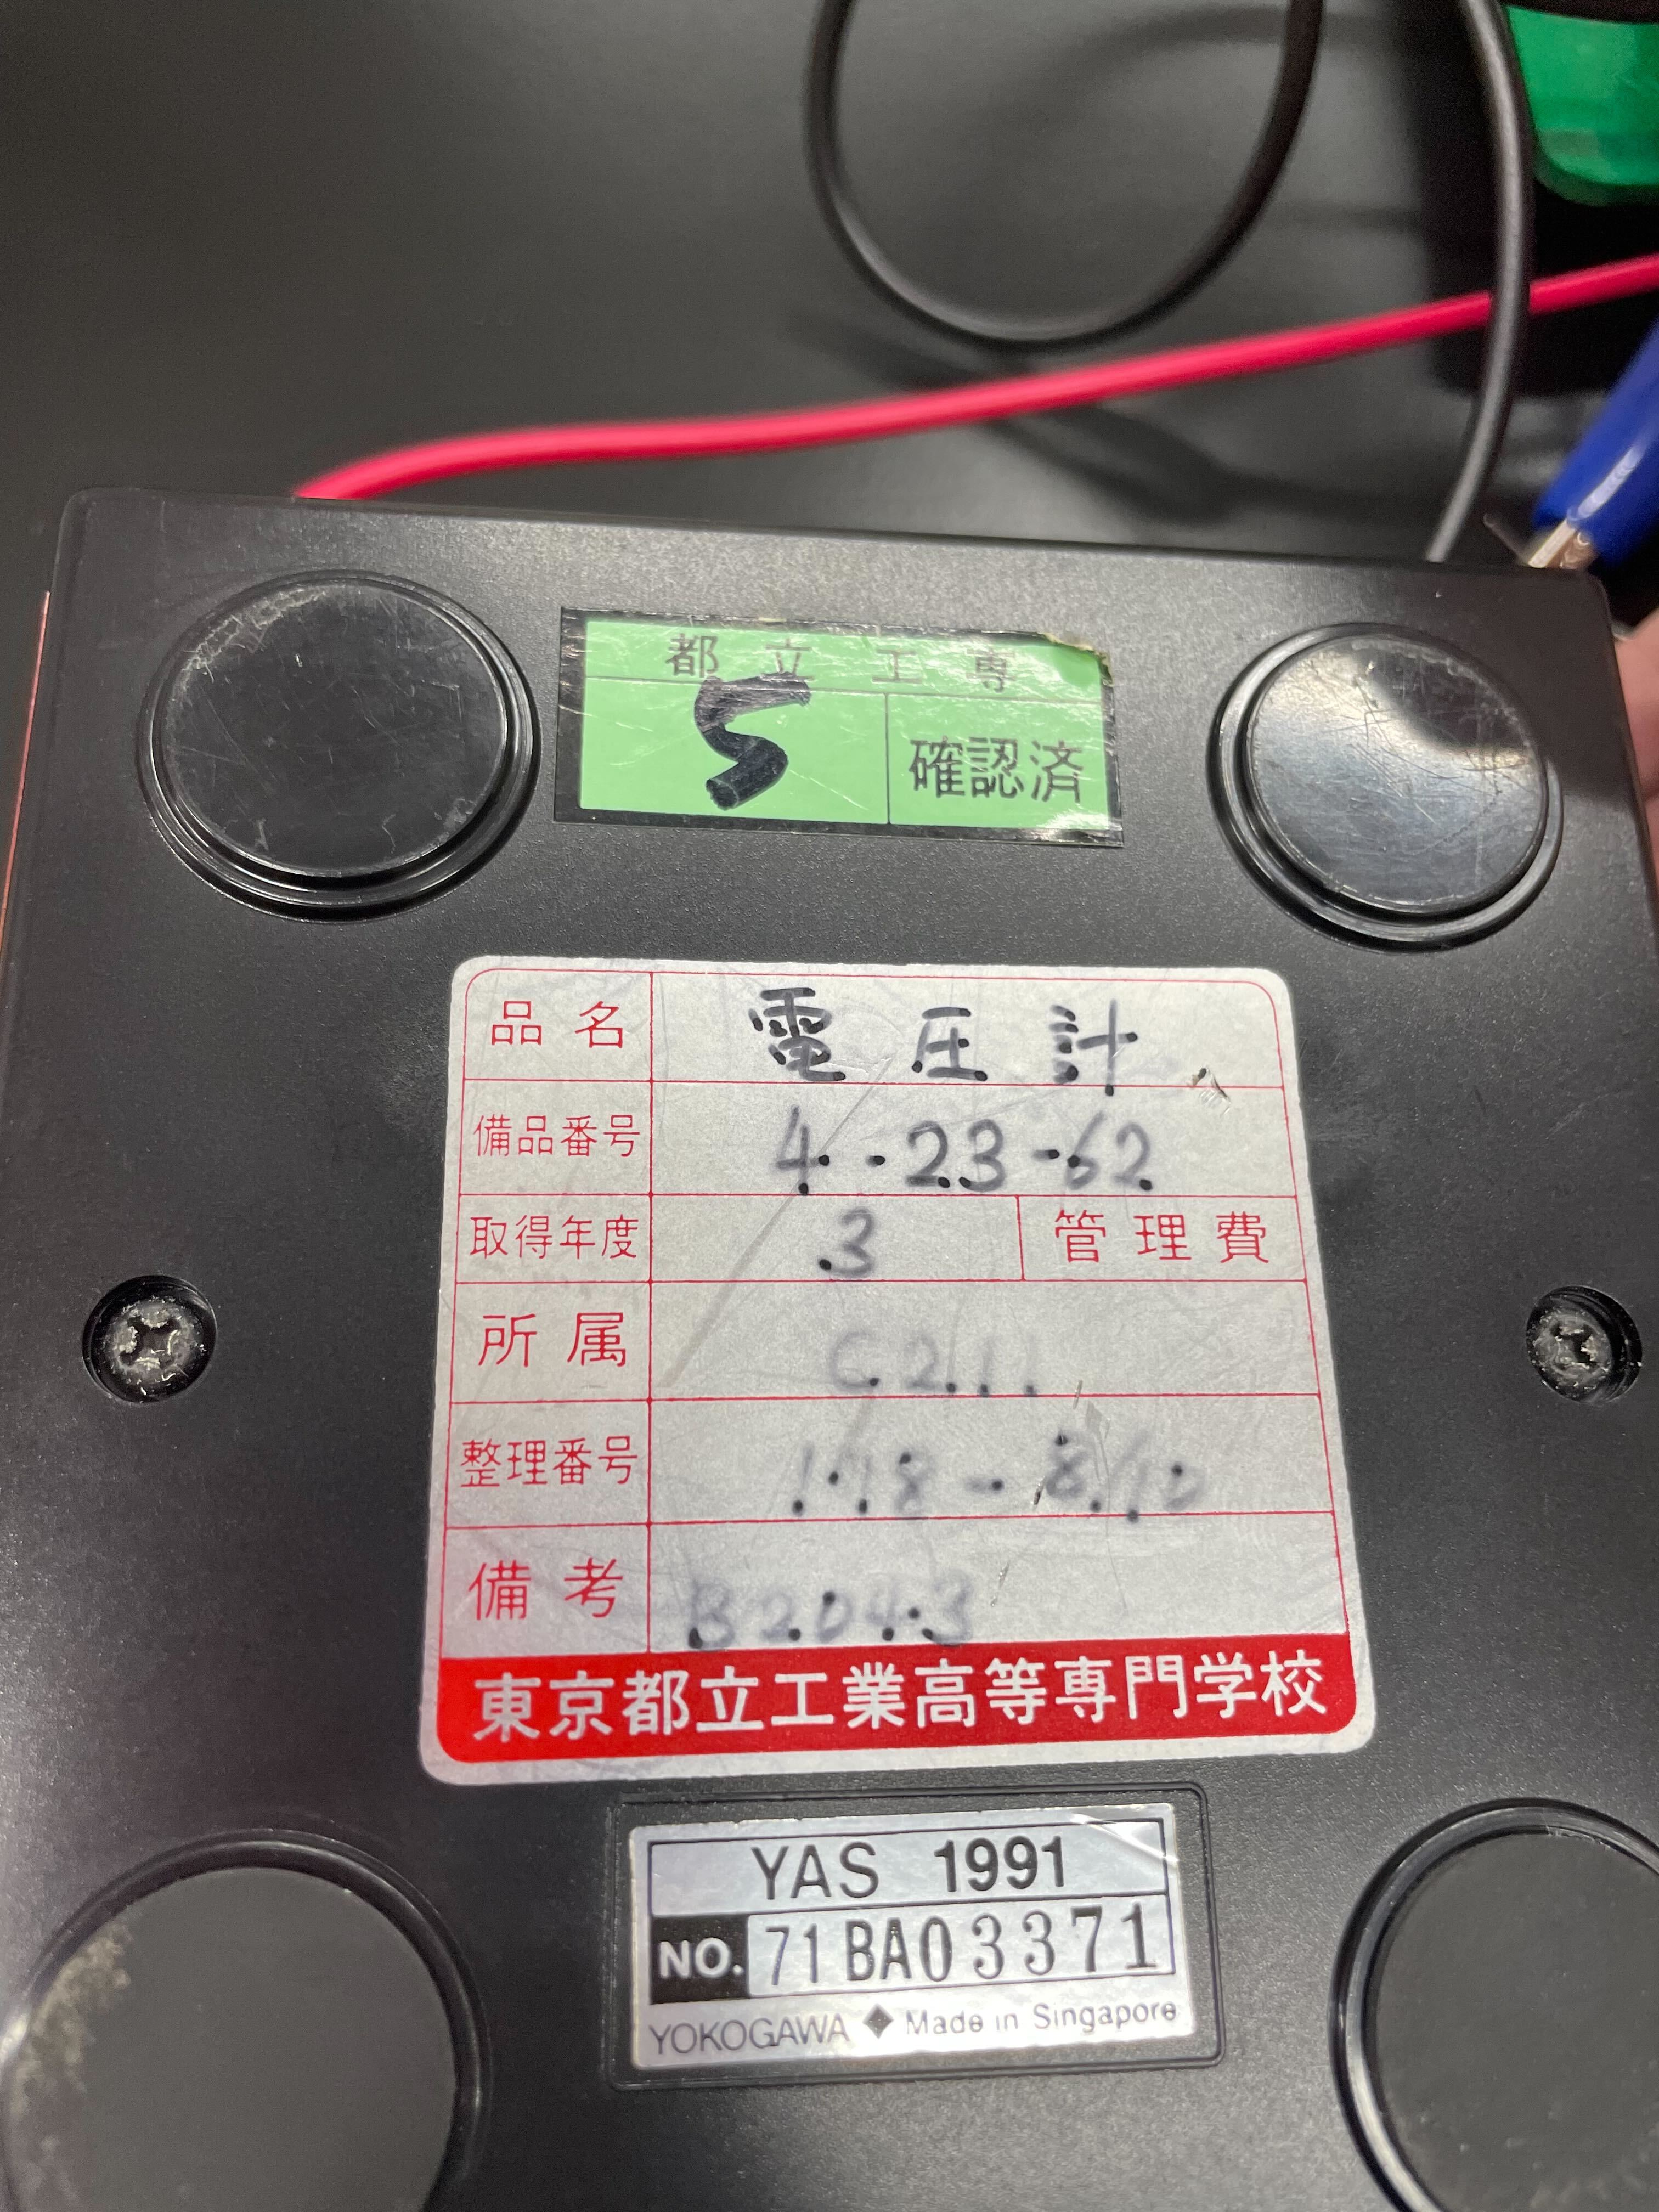 都立工専
5 確認済
品名 電圧計
備品番号 4-23-62
取得年度 3 管理費
所属 C211
整理番号
備考 B2043
東京都立工業高等専門学校
YAS 1991
NO. 71BA03371
YOKOGAWA ◆ Made in Singapore